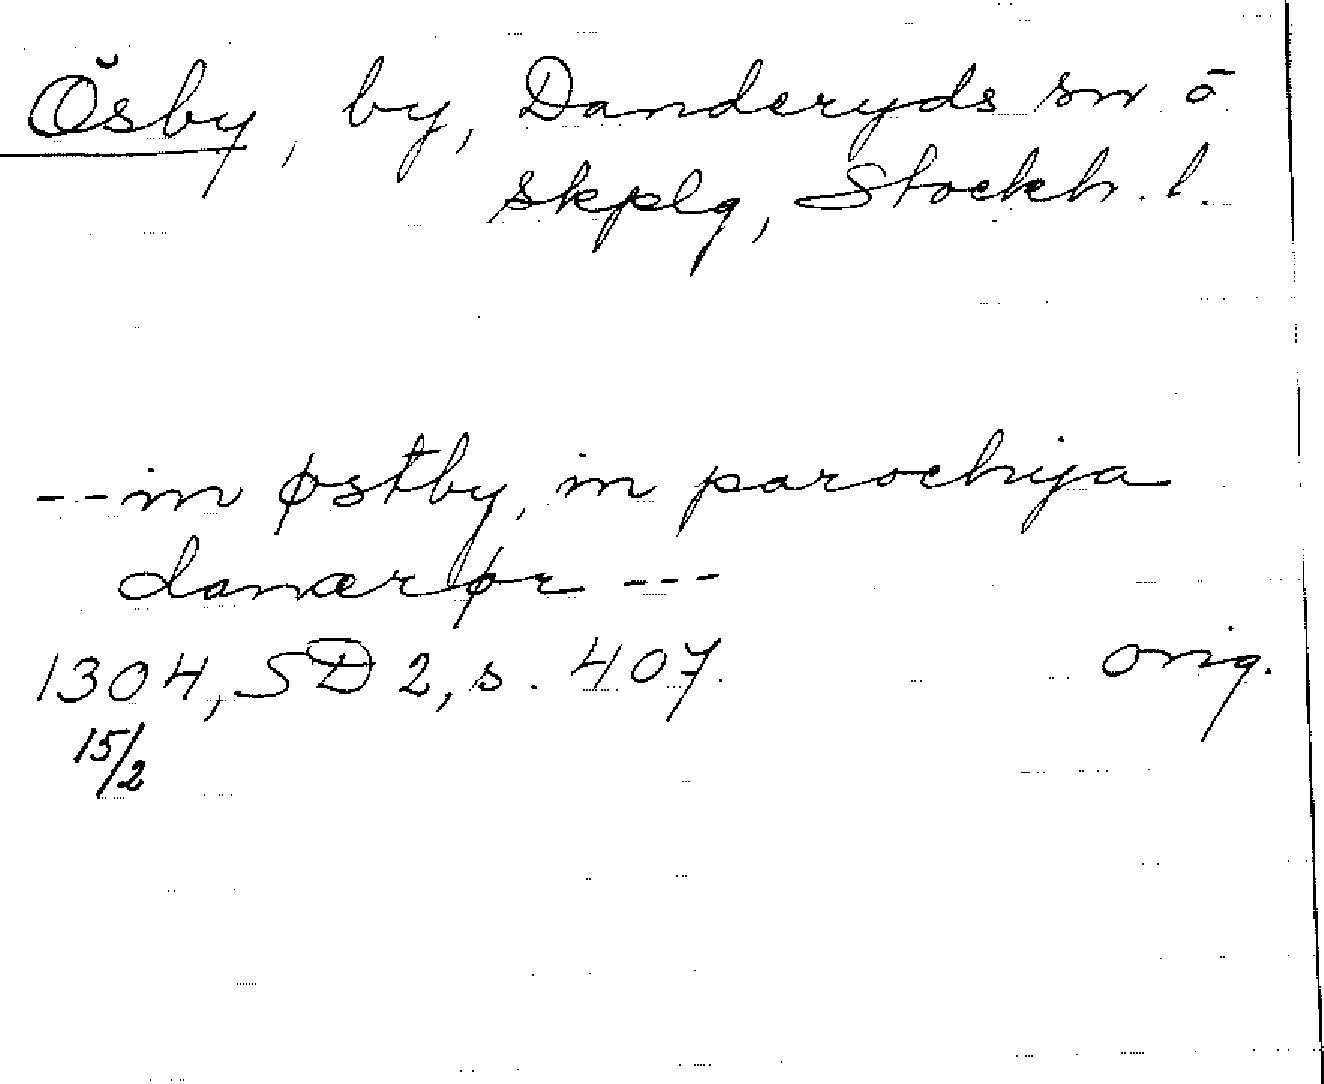 Ösby, by, Danderyds sn o
skplg, Stockh. l.
--in østby, in parochija
danærør ---
1304, SD 2, s. 407. orig.
15/2